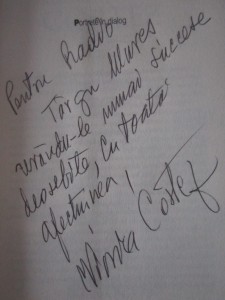 Portret în dialog
Pentru Radio
Târgu Mureș
urându-le numai succese
deosebite, cu toată
afecțiunea,
Costea